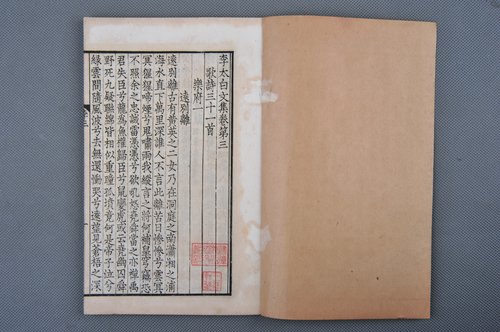 李太白文集卷第三
歌詩三十一首
樂府一
遠別離
遠別離古有黃英之二女乃在洞庭之南瀟湘之浦
海水直下萬里深誰人不言此離苦日慘慘兮雲冥
冥猩猩啼煙兮鬼嘯雨我縱言之將何補皇穹竊恐
不照余之忠誠雷憑憑兮欲吼怒堯舜當之亦禪禹
君失臣兮龍為魚權歸臣兮鼠變虎或云堯幽囚舜
野死九疑聯綿皆相似重瞳孤墳竟何是帝子泣兮
綠雲間隨風波兮去無還慟哭兮遠望見蒼梧之深